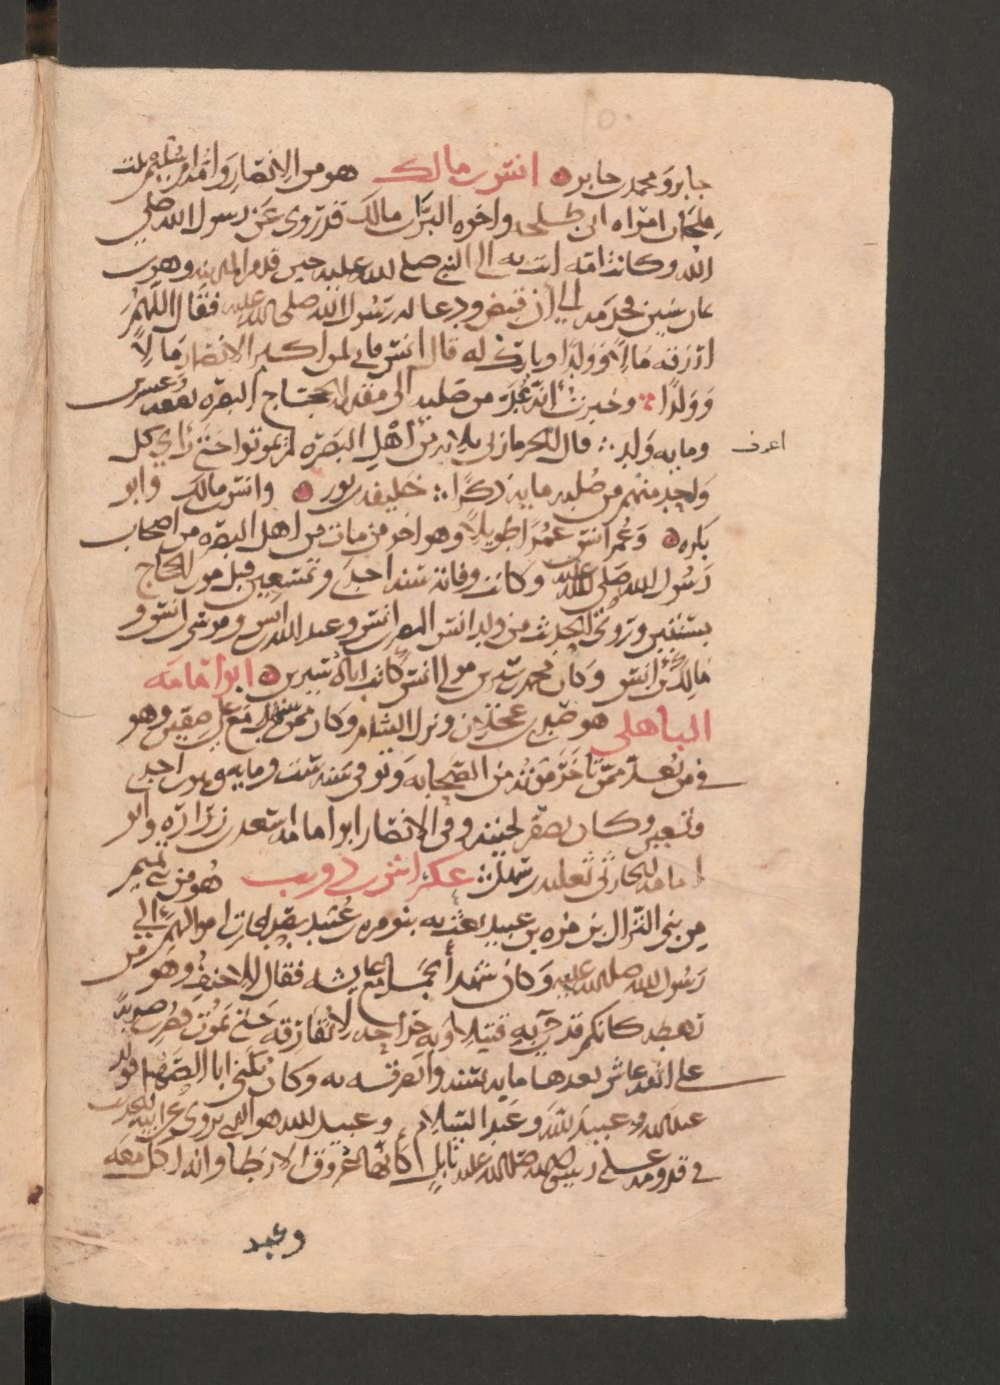 جابر ومحمد بن جابر ۞ انس بن مالك هو من الانصار وامه ام سليم بنت
ملحان امراه ابي طلحه واخوه البرا بن مالك قد روى عن رسول الله صلى
الله وكانت امه اتت به الى النبي صلى الله عليه حين قدم المدينه وهو بن
ثمان سنين فخدمه الى ان قبض ودعا له رسول الله صلى الله عليه فقال اللهم
ارزقه مالا وولدا وبارك له قال انس فاني لمن اكثر الانصار مالا
وولدا وخبرت انه من صلبه الى مقدم الحجاج البصره بضعه وعشرين
ومايه ولد قال الحرمازي ثلاثه من اهل البصره لم يموتوا حتى راى كل
اعرف
واحد منهم من صلبه مايه ذكرا خليفه بن بدر ۞ وانس بن مالك وابو
بكره ۞ وعمر انس عمرا طويلا وهو اخر من مات من اهل البصره من اصحاب
رسول الله صلى الله عليه وكانت وفاته سنه احدى وتسعين قبل موت الحجاج
بسنتين وروى الحديث من ولد انس النضر بن انس وعبد الله بن انس وموسى بن انس و
مالك بن انس وكان محمد بن سيرين مولى انس كاتب اباه سيرين ۞ ابو امامه
الباهلي هو صدي بن عجلان ونزل الشام وكان ممن مع علي صفين وهو
في من تاخر موته من الصحابه وتوفي سنه ست وهو بن احدى
وتسعين وكان يصفر لحيته وفي الانصار ابو امامه اسعد بن زراره وابو
امامه الحارثي ثعلبه بن سهل عكراش بن ذويب هو من بني تميم
من بني النزال بن مره بن عبيد بعث به بنو مره بن عبيد بصدقات اموالهم الى
رسول الله صلى الله عليه وكان شهد الجمل مع عايشه فقال الاحنف وهو من
رهطه كانكم قد جي به قتيلا او به جراحه لا تفارقه حتى يموت فضرب ضربه
على انفه عاش بعدها مايه سنه واثر الضربه به وكان يكنى ابا الصهبا فولد
عبد الله وعبيد الله وعبد السلام وعبيد الله هو الذي يروى عن ابيه الحديث
في قدومه على رسول الله صلى الله عليه بابل كانها عروق الارطا وانه اكل معه
وعبد